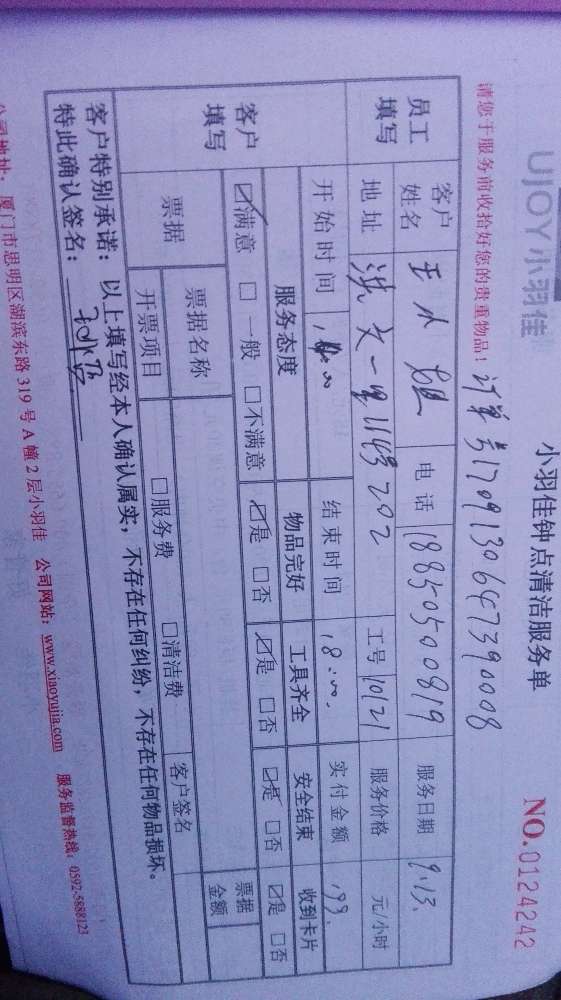 UJOY小羽佳
小羽佳钟点清洁服务单
NO.0124242
请您于服务前收拾好您的贵重物品！
订单号1709130647390008
员工填写 客户姓名 王小姐 电话 18850500819 服务日期 9.13.
地址 洪文一里114号202 工号 10121 服务价格 元/小时
客户填写 开始时间 14:00 结束时间 18:00. 实付金额 199.
服务态度 物品完好 工具齐全 安全结束 收到卡片
☑满意 □一般 □不满意 ☑是 □否 ☑是 □否 ☑是 □否 ☑是 □否
票据 票据名称 客户签名 票据金额
开票项目 □服务费 □清洁费
客户特别承诺：以上填写经本人确认属实，不存在任何纠纷，不存在任何物品损坏。
特此确认签名：
公司地址：厦门市思明区湖滨东路319号A幢2层小羽佳 公司网站：www.xiaoyujia.com 服务监督热线：0592-5888123